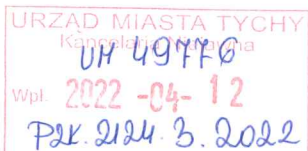 URZĄD MIASTA TYCHY
Kancelaria Główna
UM 49776
Wpł. 2022 -04- 12
PZK. 2124. 3. 2022